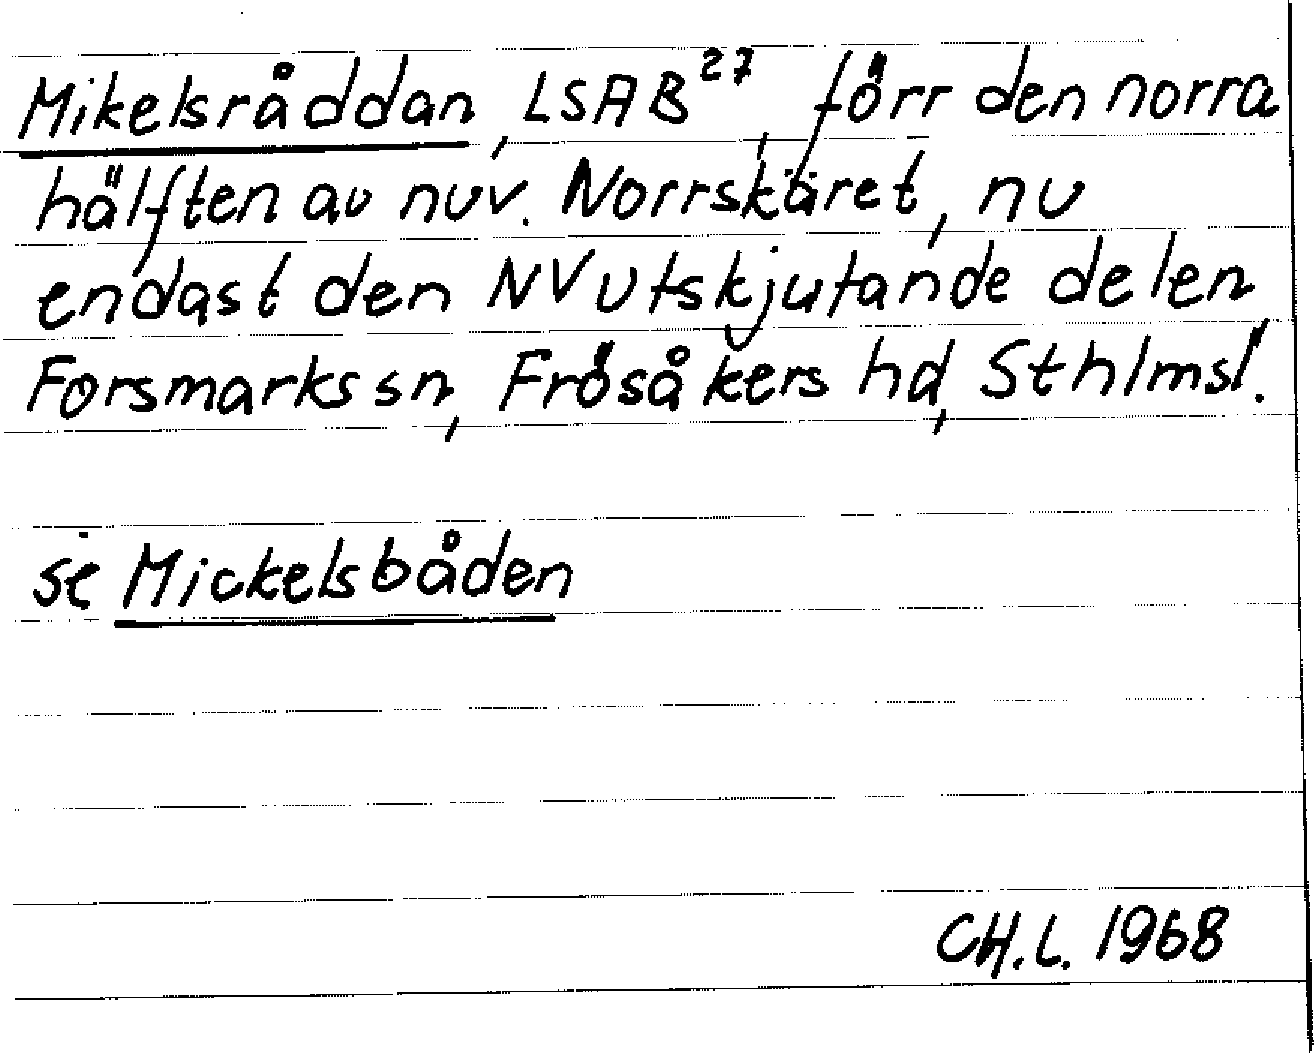 Mikelsråddan, LSAB 27, förr den norra
hälften av nuv. Norrskäret, nu
endast den NV utskjutande delen
Forsmarks sn, Frösåkers hd, Sthlmsl.
se Mickelsbåden
CH.L. 1968